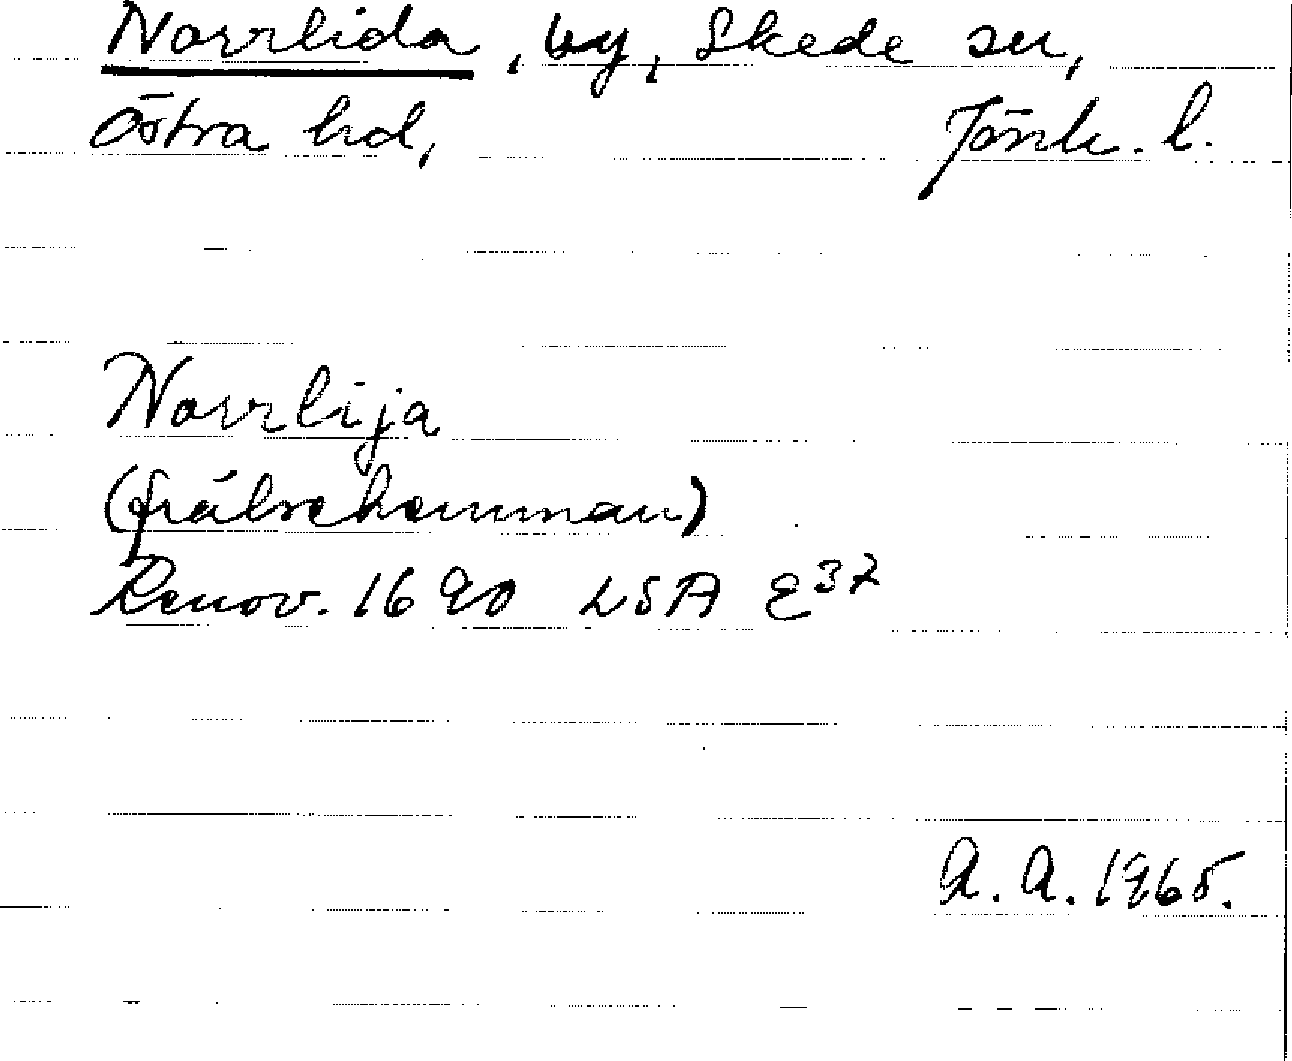 Norrlida, by, Skede sn,
Östra hd, Jönk. l.
Norrlija
(frälsehemman)
Renov. 1690 LSA E37
A. A. 1965.